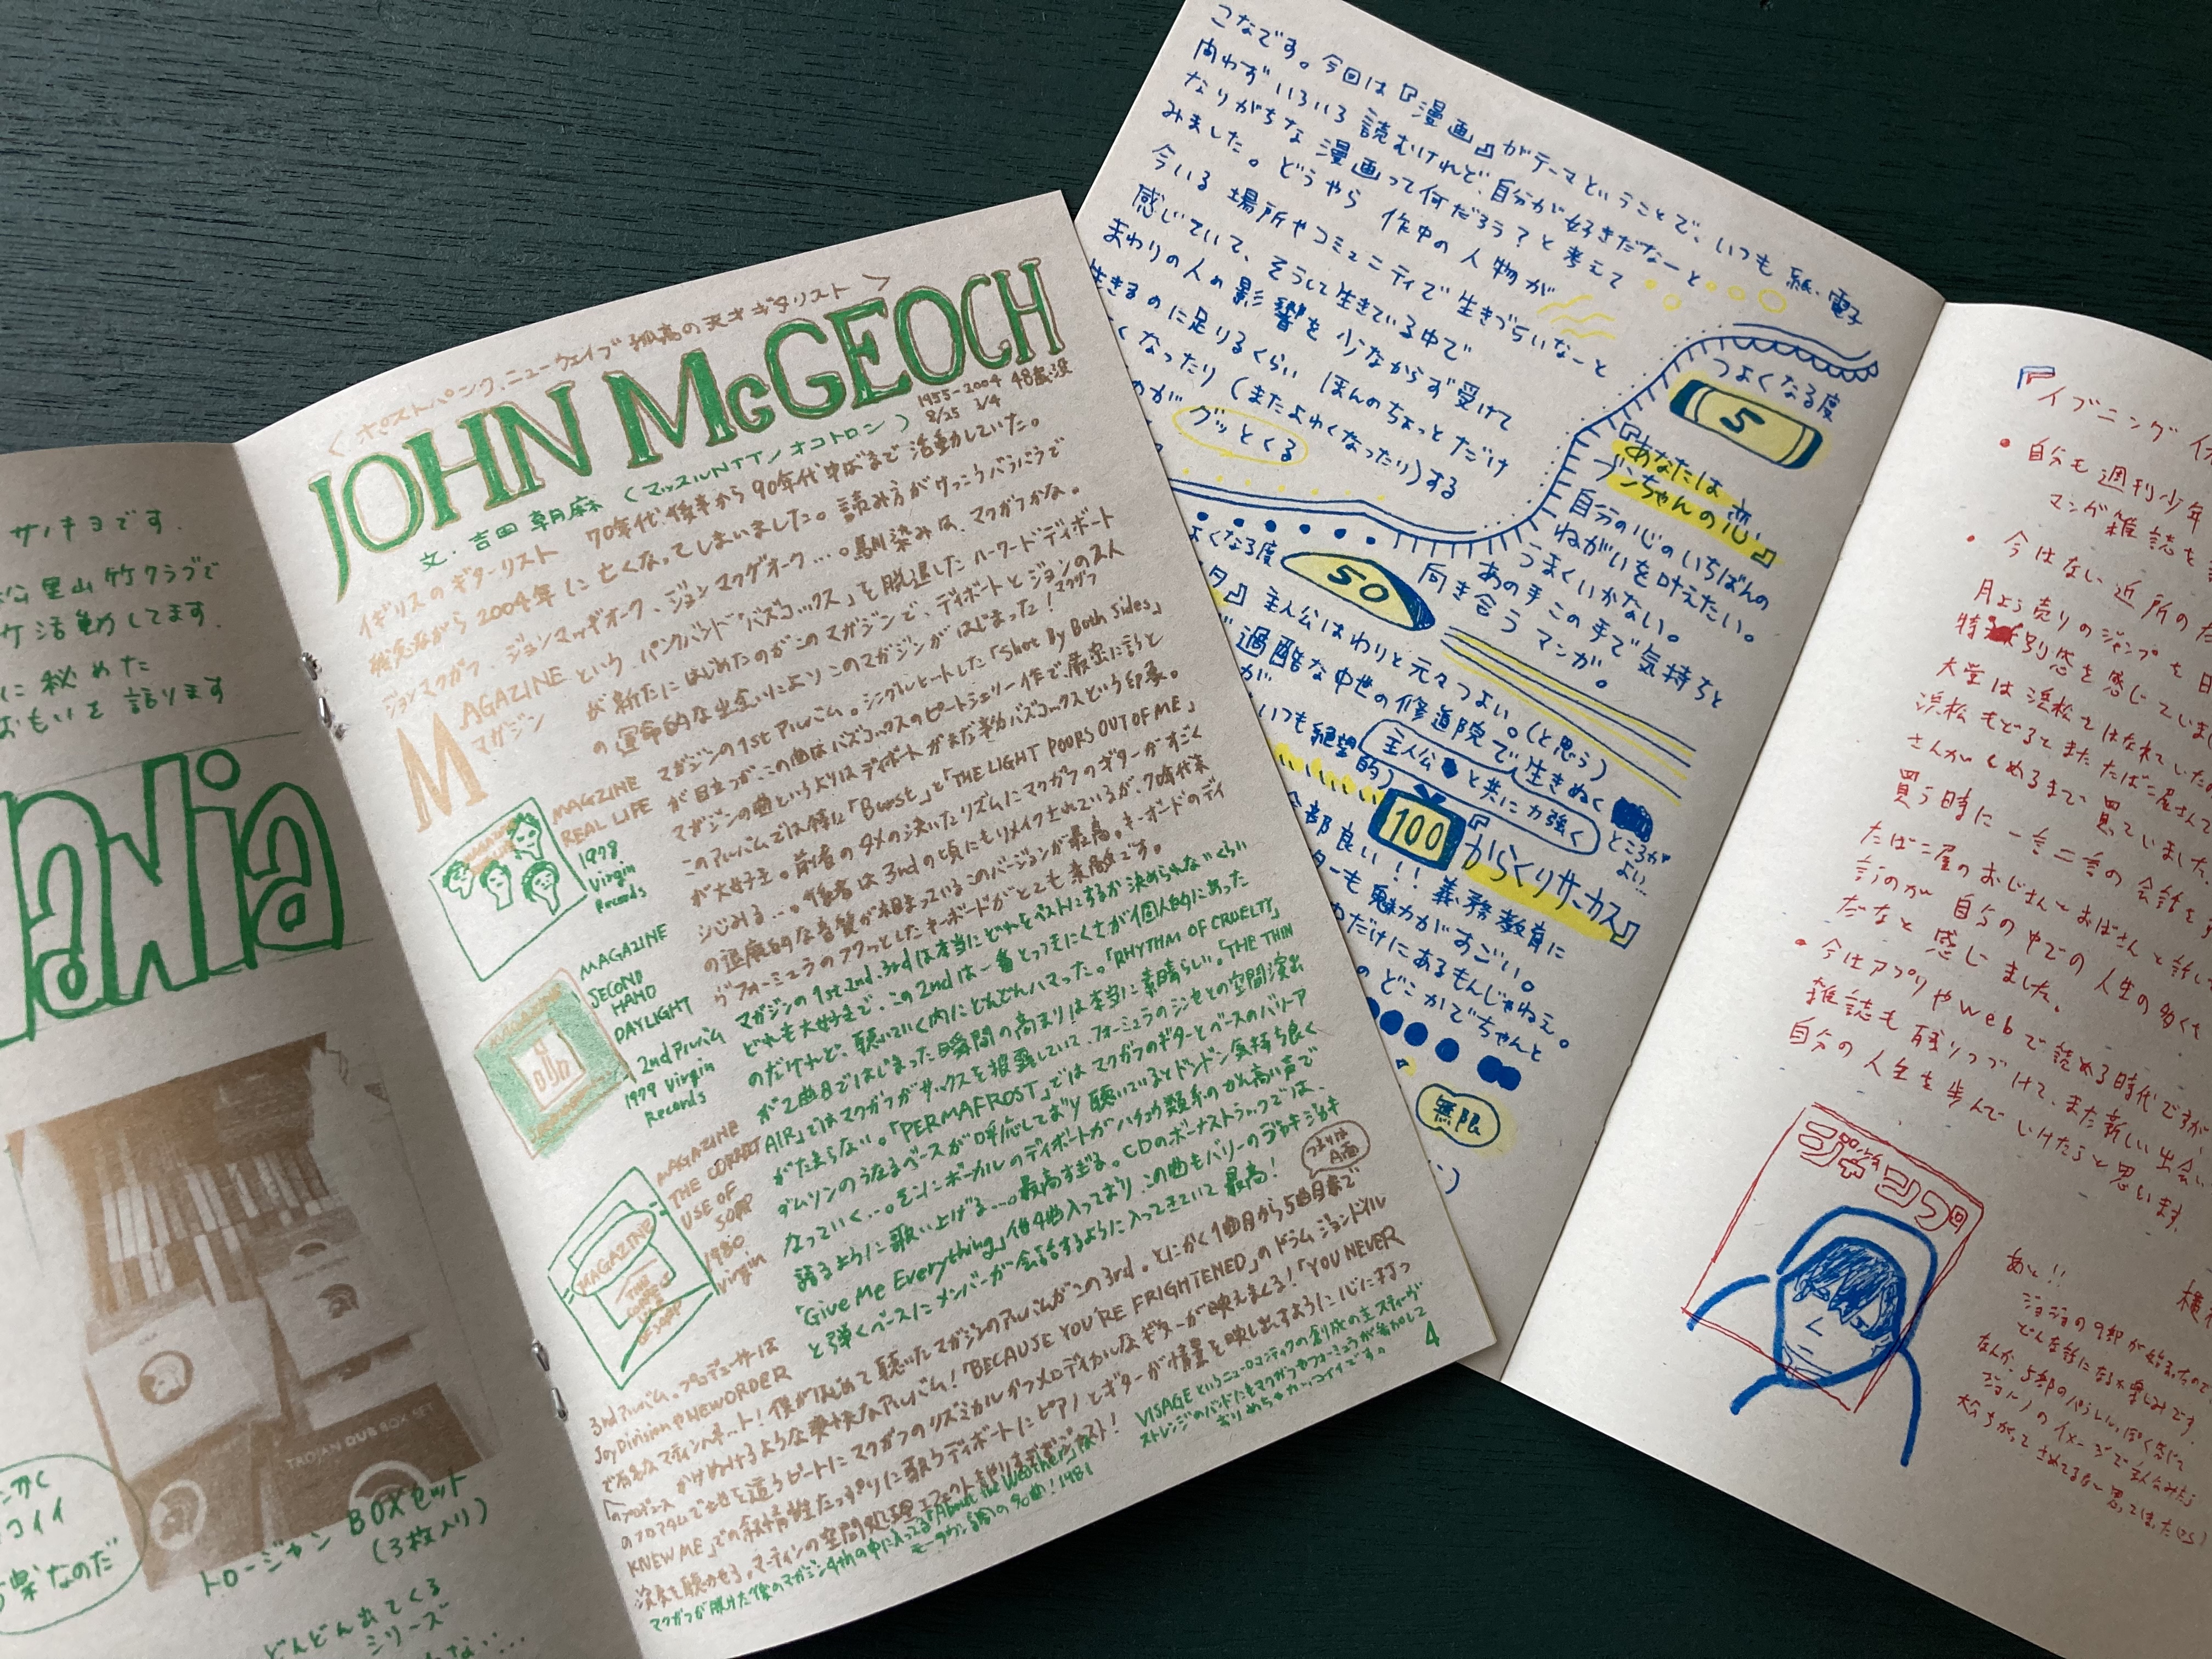 サノキヨです.
公里山竹クラブで
活動してます.
に秘めた
おもいを語ります
TROJAN DUB BOX SET
トロージャン BOXセット
(3枚入り)
どんどん出てくる
シリーズ
コイイ
なのだ
〈ポストパンク、ニューウェイブ 孤高の天才ギタリスト〉
JOHN McGEOCH
1955-2004 48歳没
8/25 3/4
文・吉田朝麻〈マッスルNTT/オコトロン〉
イギリスのギターリスト 70年代後半から90年代中ばまで活動していた。
残念ながら2004年に亡くなってしまいました。読み方がけっこうバラバラで
ジョンマクガフ、ジョンマッギオーク、ジョンマクゲオーク…。馴染みは、マクガフかな。
MAGAZINEという、パンクバンド「バズコックス」を脱退したハワード・ディボート
マガジン
が新たにはじめたのがこのマガジンで、ディボートとジョンの2人
マクガフ
の運命的な出会いによりこのマガジンがはじまった!
MAGAZINE
REAL LIFE
1978
Virgin
Records
マガジンの1stアルバム。シングルヒットした「Shot By Both Sides」
が目立つが、この曲はバズコックスのピートシェリー作で、厳密に言うと
マガジンの曲というよりはディボートがまだ半分バズコックスという印象。
このアルバムでは特に「Burst」と「THE LIGHT POORS OUT OF ME」
が大好き。前者のタメの決いたリズムにマクガフのギターがすごく
シじみる…。後者は3rdの頃にもリメイクされているが、70年代末
の退廃的な音質が相まっているこのバージョンが最高。キーボードのディ
ヴフォーミュラのフワッとしたキーボードがとても素敵です。
MAGAZINE
SECOND
HAND
DAYLIGHT
2ndアルバム
1979 Virgin
Records
マガジンの1st.2nd.3rdは本当にどれをベストにするか決められないくらい
どれも大好きで、この2ndは一番とっつきにくさが個人的にあった
のだけれど、聴いていく内にどんどんハマった。「RHYTHM OF CRUELTY」
が2曲目ではじまった瞬間の高まりは本当に素晴らしい。「THE THIN
AIR」ではマクガフがサックスを披露していて、フォーミュラのシンセとの空間演出
がたまらない。「PERMAFROST」ではマクガフのギターとベースのバリーア
ダムソンのうなるベースが呼応しており聴いているとドンドン気持ち良く
なっていく…。そこにボーカルのディボートがハチュウ類系のかん高い声で
語るように歌い上げる…。最高すぎる。CDのボーナストラックでは、
「Give Me Everything」他4曲入っており、この曲もバリーのジャキジャキ
と弾くベースにメンバーが会話するように入ってきていて最高!
つまりは
A面
MAGAZINE
THE CORRECT
USE OF
SOAP
1980
Virgin
3rdアルバム。プロデューサーは
Joy DivisionやNEW ORDER
で有名なマーティンハネット! 僕がはじめて聴いたマガジンのアルバムがこの3rd。とにかく1曲目から5曲目まで
かけぬけるような爽快なアルバム!「BECAUSE YOU'RE FRIGHTENED」のドラム ジョンドイル
のフロアタムで出せを這うビートにマクガフのリズミカルかつメロディカルなギターが映えまくる!「YOU NEVER
KNEW ME」での叙情性たっぷりに歌うディボートにピアノとギターが情景を映し出すように心に打つ
演奏を聴かせる。マーティンの空間処理エフェクトもやりすぎずジャスト!
マクガフが脱けた後のマガジン4thの中に入ってる「About the Weather」は
モータウン調の名曲! 1981
VISAGEというニューロマンティックの創成の主スティーヴ
ストレンジのバンドにもマクガフもフォーミュラが参加して
おり めちゃカッコイイです。
4
こなです。今回は『漫画』がテーマということで、いつも紙・電子
問わずいろいろ読むけれど、自分が好きだなーと
なりがちな漫画って何だろう?と考えて
みました。どうやら作中の人物が
今いる場所やコミュニティで生きづらいなーと
感じていて、そうして生きている中で
まわりの人の影響を少なからず受けて
生きるのに足りるくらいほんのちょっとだけ
くなったり(またよわくなったり)する
のがグッとくる
つよくなる度
5
『あなたは
ブンちゃんの恋』
自分の心のいちばんの
ねがいを叶えたい。
うまくいかない。
あの手この手で気持ちと
向き合うマンガ。
よくなる度
50
』主人公はわりと元々つよい。(と思う)
過酷な中世の修道院で生きぬく
が
主人公と共に力強く
ところが
よい…
いつも絶望的)
100
『からくりサーカス』
全部良い!! 義務教育に
ターも魅力がすごい。
わだけにあるもんじゃねえ。
のどこかでちゃんと
無限
『イブニング
・自分も週刊少年
マンガ雑誌を
・今はない近所のた
月よう売りのジャンプを日
特別感を感じていまし
大学は浜松をはなれていたの
浜松もどるとまたたばこ屋さんで
さんがしめるまで買っていました。
買う時に一言二言の会話を
たばこ屋のおじさんとおばさんと話し
言うのが自分の中での人生の多くを
だなと感じました。
・今はアプリやwebで読める時代ですが
雑誌も残りつづけて、また新しい出会い
自分の人生を歩んでいけたらと思います。
ジャンプ
あと!!
ジョジョの9部が始まったので
どんな話になるか楽しみです。
なんか、5部のパラレルっぽく感じて
ジョルノのイメージで主人公みたら